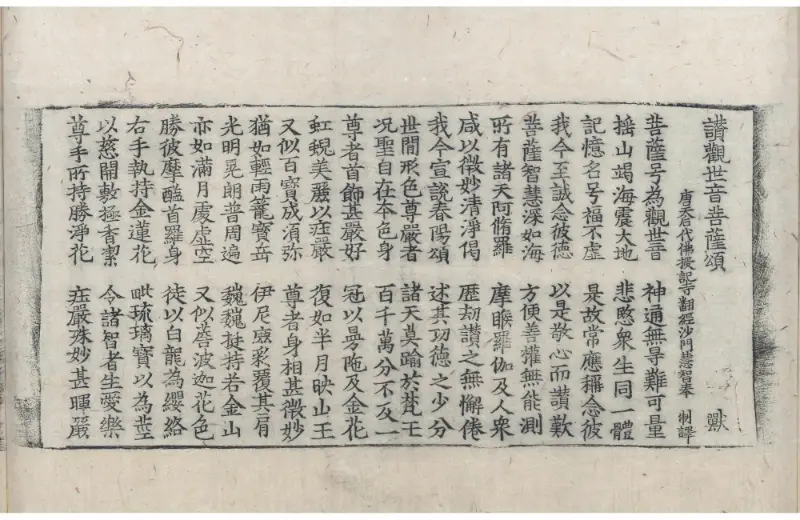 讃觀世音菩薩頌 獸
唐天后代佛授記寺翻經沙門慧智奉 制譯
菩薩号為觀世音 神通無㝵難可量
揺山竭海震大地 悲愍衆生同一體
記憶名号福不虛 是故常應稱念彼
我今至誠念彼德 以是敬心而讃歎
菩薩智慧深如海 方便善權無能測
所有諸天阿脩羅 摩睺羅伽及人衆
咸以微妙清淨偈 歷劫讃之無懈倦
我今宣說春陽頌 述其功德之少分
世間形色尊嚴者 諸天莫踰於梵王
况聖自在本色身 百千萬分不及一
尊者首飾甚嚴好 冠以曼陁及金花
虹蜺美麗以莊嚴 復如半月映山王
又似百寶成湏弥 尊者身相甚微妙
猶如輕雨籠寶岳 伊尼鹿彩覆其肩
光明晃朗普周遍 巍巍挺持若金山
亦如滿月處虛空 又似薝波迦花色
勝彼摩醯首羅身 徒以白龍為纓絡
右手執持金蓮花 毗琉璃寶以為莖
以慈開敷極香潔 令諸智者生愛樂
尊手所持勝淨花 莊嚴殊妙甚暉嚴